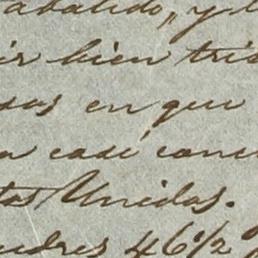 abatido, y l
ir bien tris
sas en que
a casi conc
tas Unidas.
udres 46 1/2